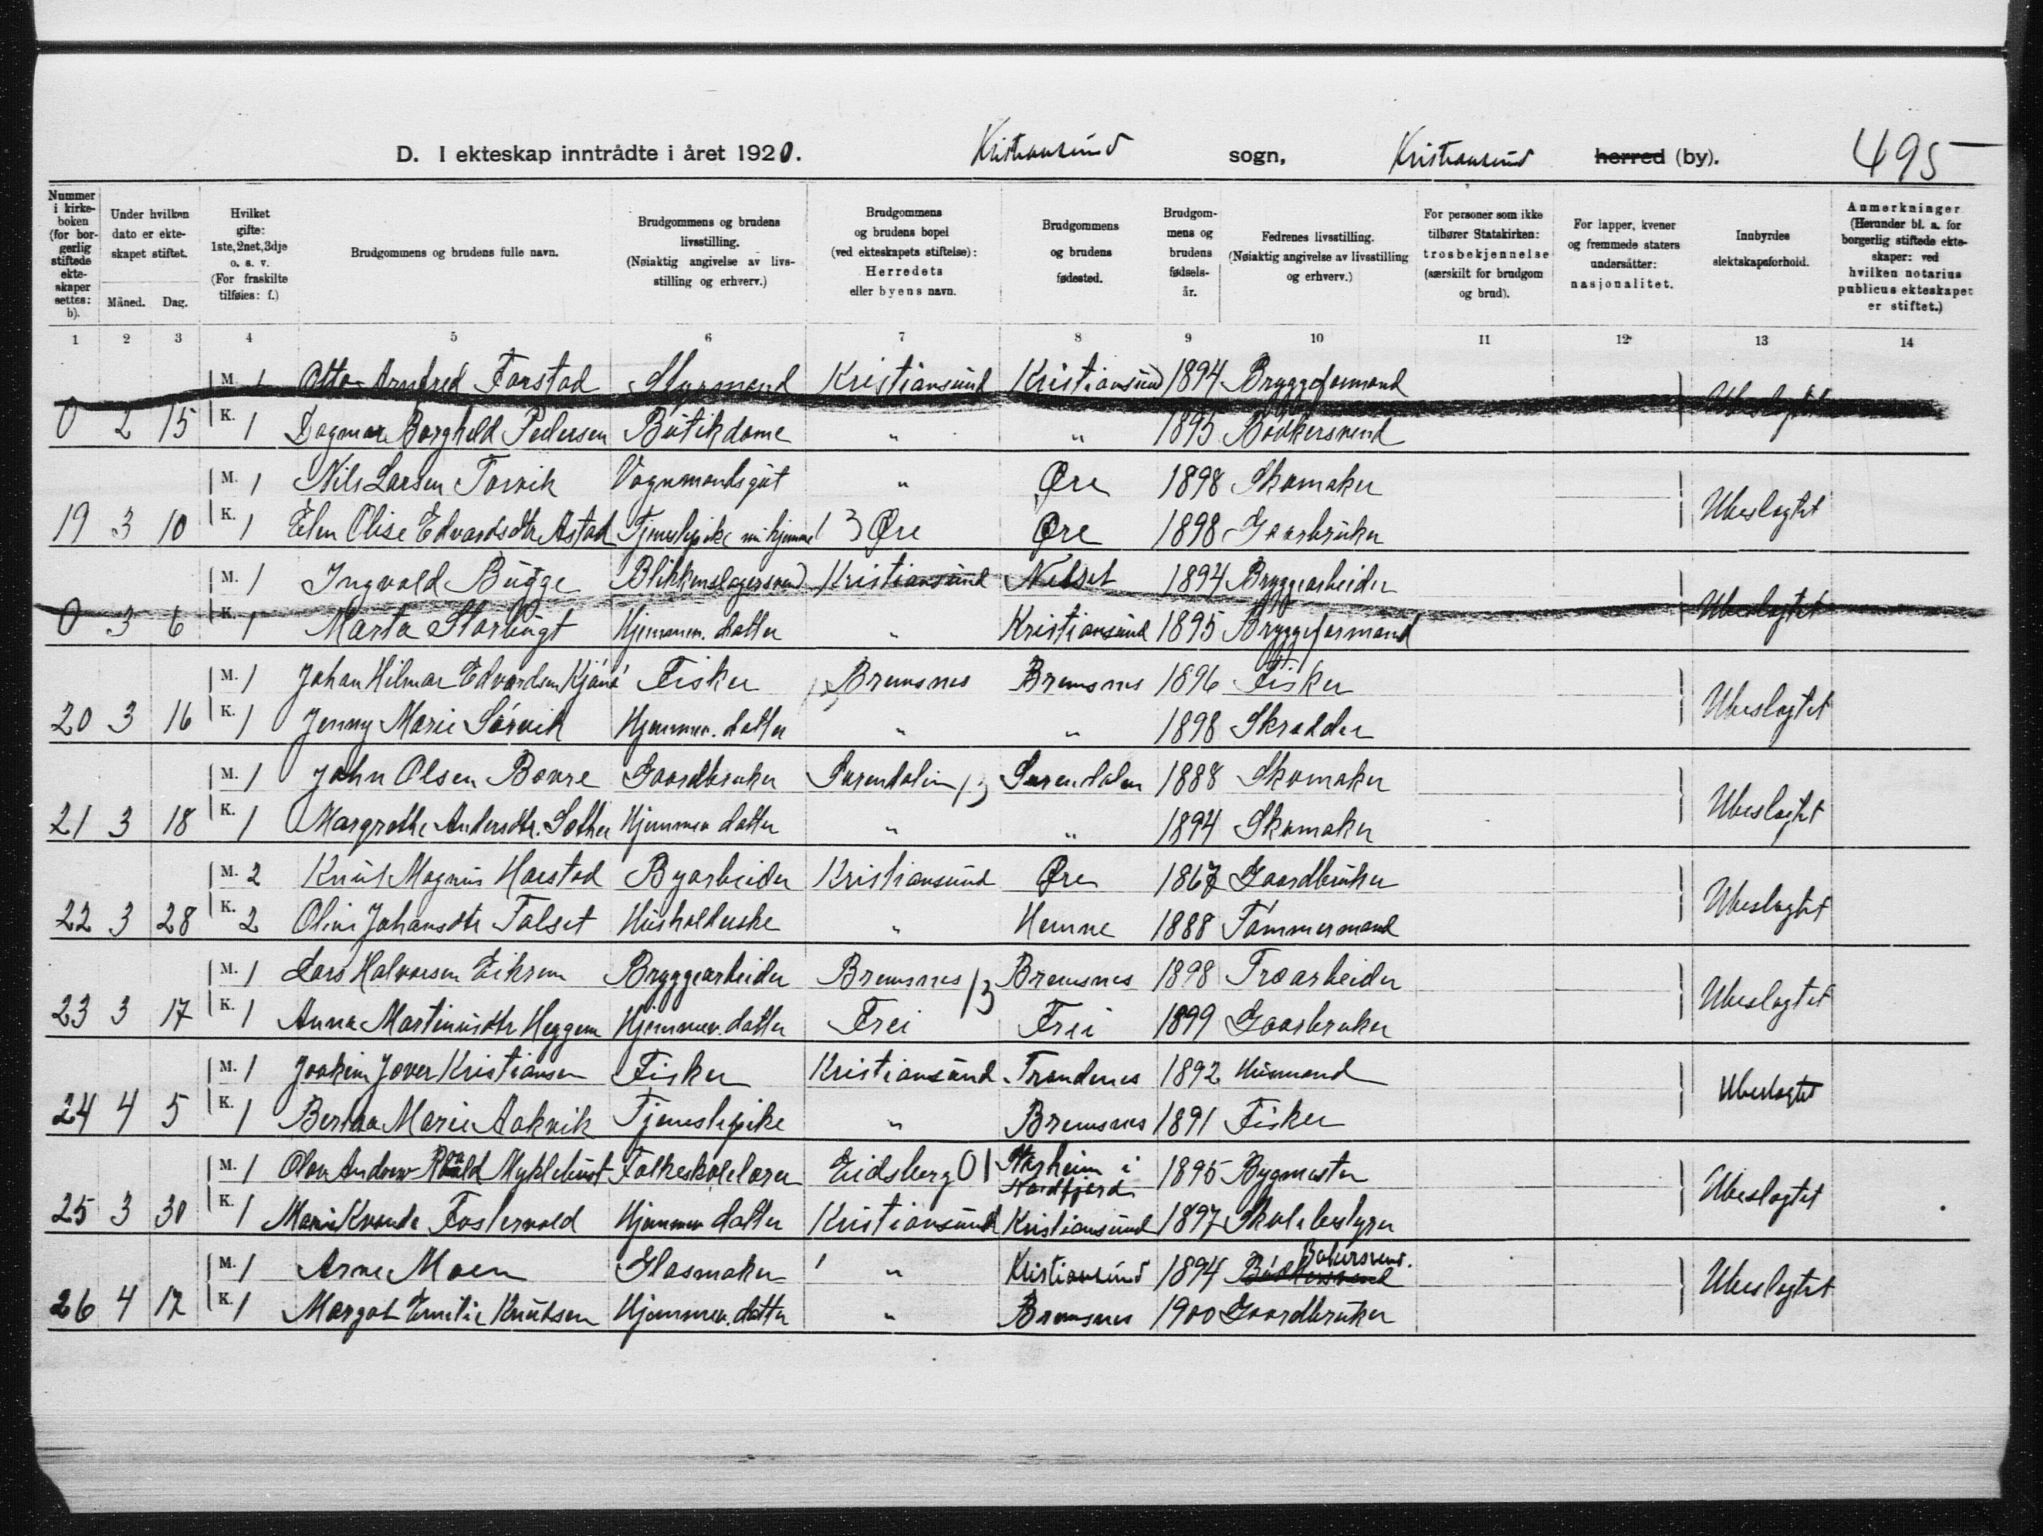 D. I ekteskap inntrådte i året 1920. Kristiansund sogn, Kristiansund herred (by). 495
Nummer i kirkeboken (for borgerlig stiftede ekteskaper settes: b).
Under hvilken dato er ekteskapet stiftet. Måned. Dag.
Hvilket gifte: 1ste, 2net, 3dje o. s. v. (For fraskilte tilføies: f.)
Brudgommens og brudens fulle navn.
Brudgommens og brudens livsstilling. (Nøiaktig angivelse av livsstilling og erhverv.)
Brudgommens og brudens bopel (ved ekteskapets stiftelse): Herredets eller byens navn.
Brudgommens og brudens fødested.
Brudgommens og brudens fødselsår.
Fedrenes livsstilling. (Nøiaktig angivelse av livsstilling og erhverv.)
For personer som ikke tilhører Statskirken: trosbekjennelse (særskilt for brudgom og brud).
For lapper, kvener og fremmede staters undersåtter: nasjonalitet.
Innbyrdes slektskapsforhold.
Anmerkninger (Herunder bl. a. for borgerlig stiftede ekteskaper: ved hvilken notarius publicus ekteskapet er stiftet.)
1 2 3 4 5 6 7 8 9 10 11 12 13 14
M. 1 Otto Arnfred Forstad Styrmand Kristiansund Kristiansund 1894 Bryggeformand Ubeslogtet
0 2 15 K. 1 Dagmar Borghild Pedersen Butikdame " " 1895 Bødkersvend
M. 1 Nils Larsen Torvik Vognmandsgut " Øre 1898 Skomaker Ubeslogtet
19 3 10 K. 1 Elen Olise Edvardsdtr Astad Tjenestepike 13 Øre Øre 1898 Gaarbruker
M. 1 Ingvald Bugge Blikkenslagersvend Kristiansund 1894 Bryggearbeider Ubeslogtet
0 3 6 K. 1 Marta Hjemmev. datter " Kristiansund 1895 Bryggeformand
M. 1 Johan Hilmar Edvardsen Fisker Bremsnes Bremsnes 1896 Fisker Ubeslogtet
20 3 16 K. 1 Jenny Marie Sørvik Hjemmev. datter " " 1898 Skrædder
M. 1 John Olsen Bævre Gaardbruker Surendalen 13 Surendalen 1888 Skomaker Ubeslogtet
21 3 18 K. 1 Margrethe Andersdtr. Sæther Hjemmev datter " " 1894 Skomaker
M. 2 Knut Magnus Harstad Byarbeider Kristiansund Øre 1867 Gaardbruker Ubeslogtet
22 3 28 K. 2 Oline Johansdtr Talset Husholderske " Hemne 1888 Tømmermand
M. 1 Lars Halvorsen Eikrem Bryggearbeider Bremsnes 13 Bremsnes 1898 Træarbeider Ubeslogtet
23 3 17 K. 1 Anna Martinusdtr Heggem Hjemmev. datter Frei Frei 1899 Gaarbruker
M. 1 Joakim Kristiansen Fisker Kristiansund Trondenes 1892 Husmand Ubeslogtet
24 4 5 K. 1 Berthe Marie Aakvik Tjenestepike " Bremsnes 1891 Fisker
M. 1 Olav Andrew Myklebust Folkeskolelærer Eidsberg 01 Starheim i Nordfjord 1895 Bygmester Ubeslogtet
25 3 30 K. 1 Marie Kvande Fostervold Hjemmev datter Kristiansund Kristiansund 1897 Skolebestyrer
M. 1 Arne Moen Glasmaker " Kristiansund 1894 Bødkersvend Bakersvend. Ubeslogtet
26 4 17 K. 1 Margot Emilie Knutsen Hjemmev. datter " Bremsnes 1900 Gaardbruker